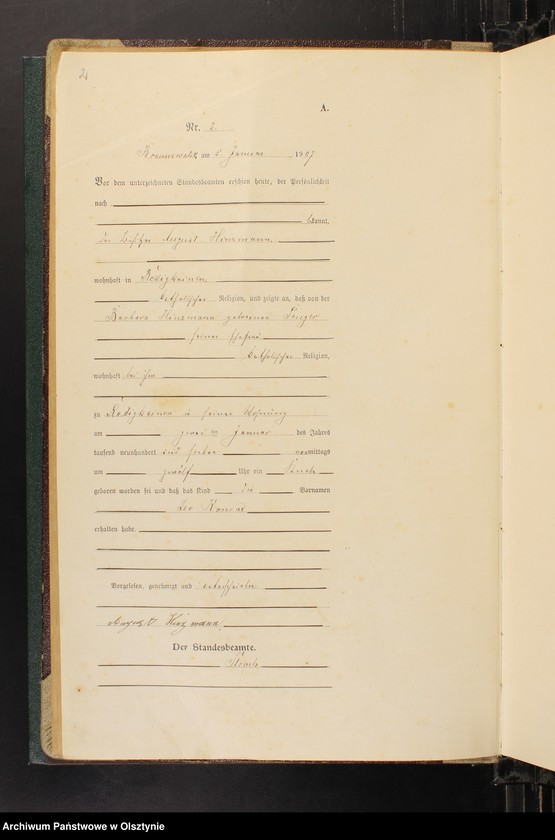 2
A.
Nr. 2.
Braunswalde am 5 Januar 1907
Vor dem unterzeichneten Standesbeamten erschien heute, der Persönlichkeit
nach
bekannt,
der Besitzer August Hinzmann
wohnhaft in
katholischer Religion, und zeigte an, daß von der
Barbara Hinzmann geborenen
seiner Ehefrau
katholischer Religion,
wohnhaft bei ihm
zu in seiner Wohnung
am zwei ten Januar des Jahres
tausend neunhundert und sieben vormittags
um zwölf Uhr ein Knabe
geboren worden sei und daß das Kind die Vornamen
Leo Konrad
erhalten habe.
Vorgelesen, genehmigt und unterschrieben
August Hinzmann.
Der Standesbeamte.
Archiwum Państwowe w Olsztynie